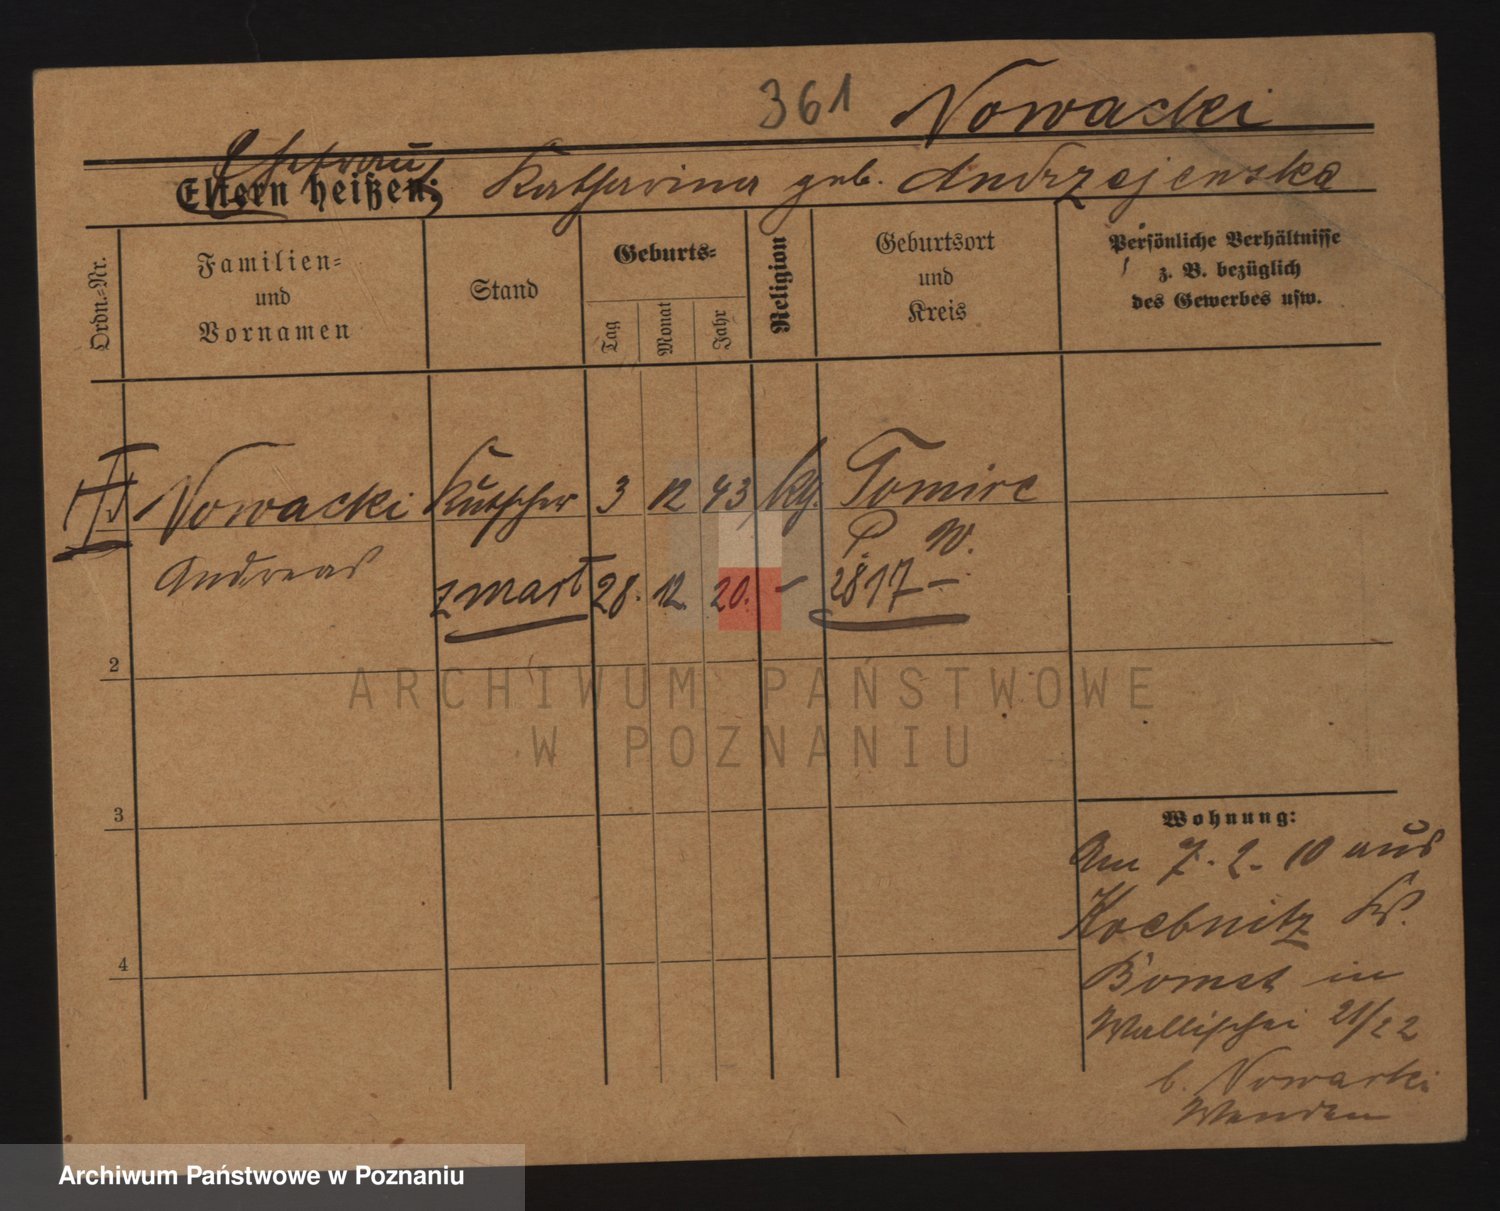 361 Nowacki
Ehefrau
Eltern heißen: Katharina geb. Andrzejewska
Ordn.-Nr.
Familien-
und
Vornamen
Stand
Geburts-
Tag
Monat
Jahr
Religion
Geburtsort
und
Kreis
Persönliche Verhältnisse
z. B. bezüglich
des Gewerbes usw.
Nowacki Kutscher 3 12 43 kg. Tomice
P. W.
Andreas
zmarł 28. 12. 20. - 2817 -
2
3
4
Wohnung:
Am 7. 2. 10 aus
Koebnitz Kr.
Bomst in
Wallischei 21/22
b. Nowacki
Wenden
ARCHIWUM PAŃSTWOWE
W POZNANIU
Archiwum Państwowe w Poznaniu